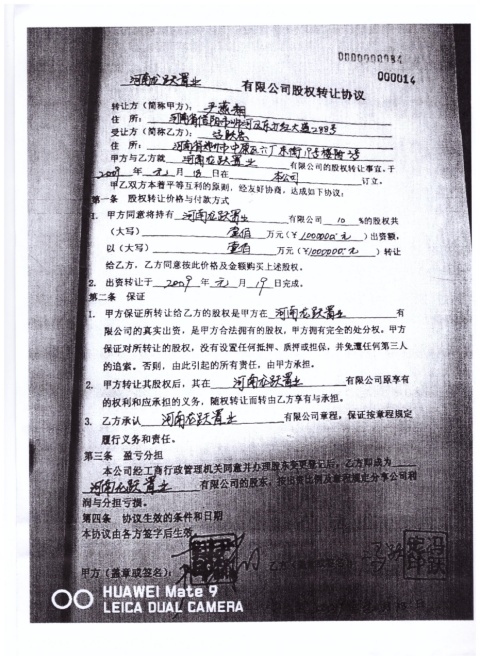 0000000084
000014
河南龙跃置业 有限公司股权转让协议
转让方（简称甲方）：
住 所：河南省信阳市
受让方（简称乙方）：
住 所：河南省郑州市中原区
甲方与乙方就 河南龙跃置业 有限公司的股权转让事宜，于
2009 年 元 月 18 日在 本公司 订立。
甲乙双方本着平等互利的原则，经友好协商，达成如下协议：
第一条 股权转让价格与付款方式
1. 甲方同意将持有 河南龙跃置业 有限公司 10 %的股权共
（大写） 壹佰 万元（￥1000000.元）出资额，
以（大写） 壹佰 万元（￥1000000.元）转让
给乙方，乙方同意按此价格及金额购买上述股权。
2. 出资转让于 2009 年 元 月 19 日完成。
第二条 保证
1. 甲方保证所转让给乙方的股权是甲方在 河南龙跃置业 有
限公司的真实出资，是甲方合法拥有的股权，甲方拥有完全的处分权。甲方
保证对所转让的股权，没有设置任何抵押、质押或担保，并免遭任何第三人
的追索。否则，由此引起的所有责任，由甲方承担。
2. 甲方转让其股权后，其在 河南龙跃置业 有限公司原享有
的权利和应承担的义务，随股权转让而转由乙方享有与承担。
3. 乙方承认 河南龙跃置业 有限公司章程，保证按章程规定
履行义务和责任。
第三条 盈亏分担
本公司经工商行政管理机关同意并办理股东变更登记后，乙方即成为
河南龙跃置业 有限公司的股东，按出资比例及章程规定分享公司利
润与分担亏损。
第四条 协议生效的条件和日期
本协议由各方签字后生效。
甲方（盖章或签名）：
HUAWEI Mate 9
LEICA DUAL CAMERA